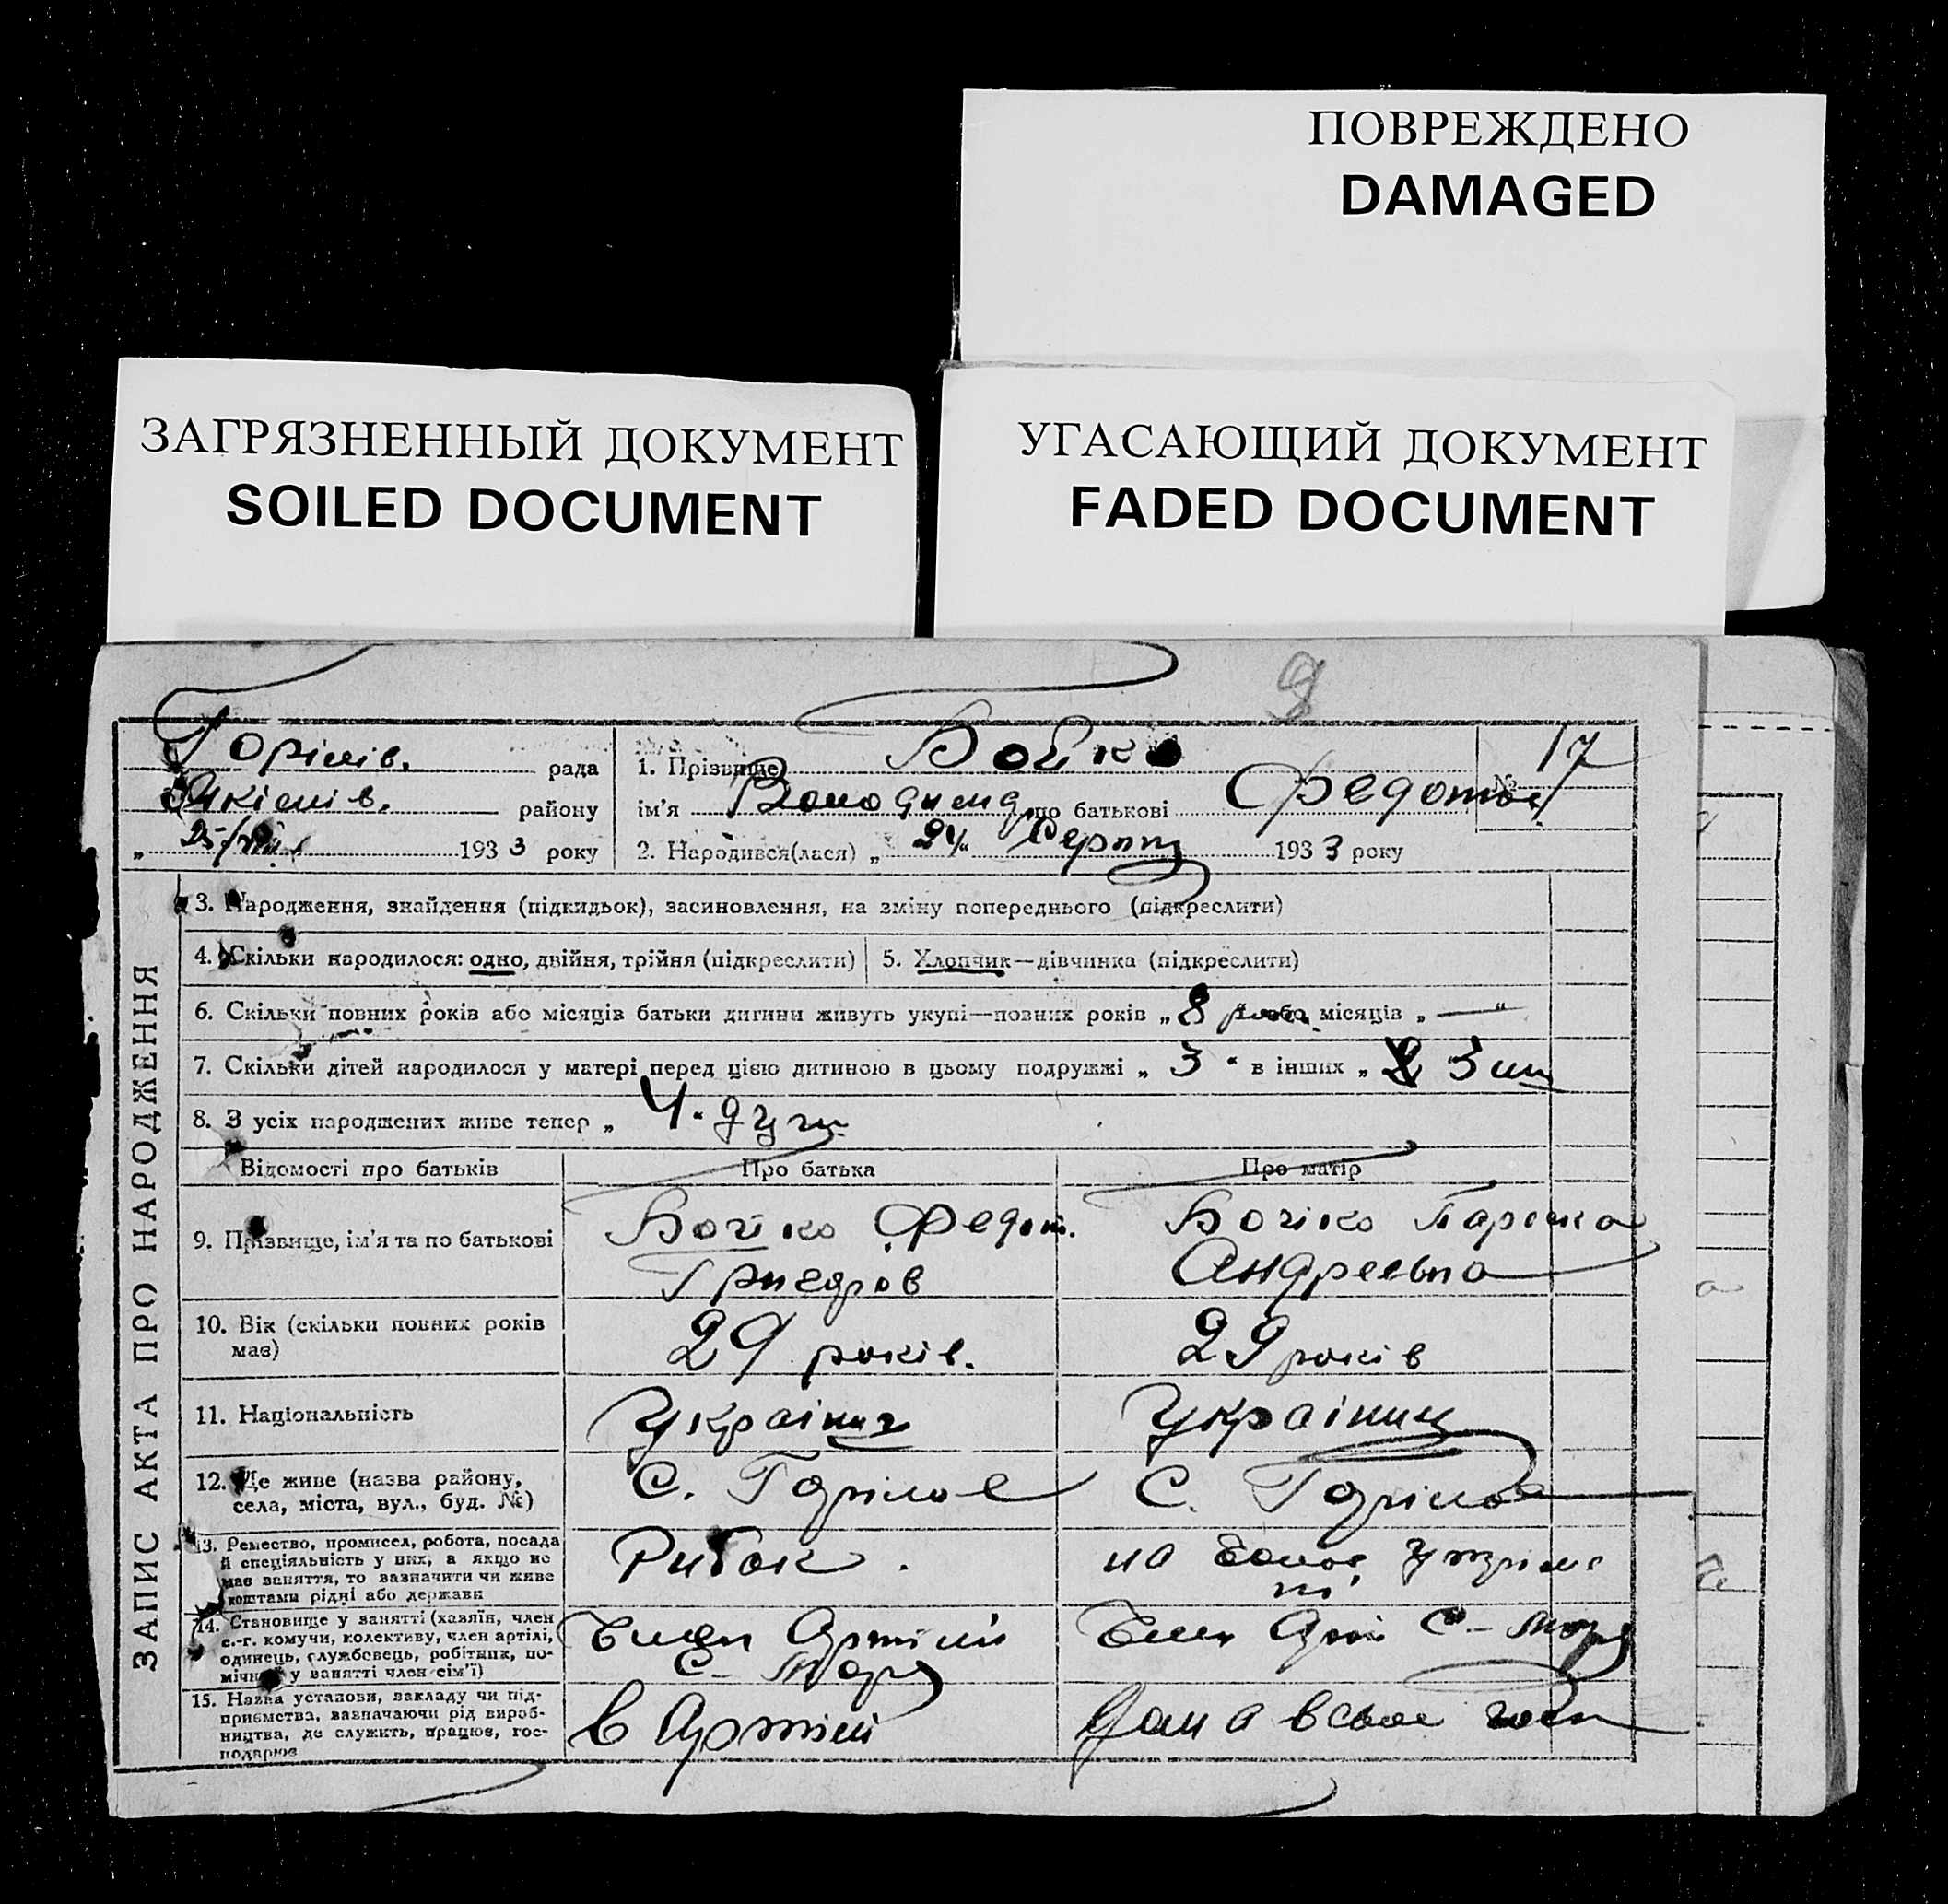 ПОВРЕЖДЕНО
DAMAGED
ЗАГРЯЗНЕННЫЙ ДОКУМЕНТ
SOILED DOCUMENT
УГАСАЮЩИЙ ДОКУМЕНТ
FADED DOCUMENT
9
Горілів. рада
Якімів. району
„ 25/VIII 1933 року
1. Прізвище Бойко
ім'я Володимир по батькові Федотов
№ 17
2. Народився(лася) „ 24 “ Серпня 1933 року
ЗАПИС АКТА ПРО НАРОДЖЕННЯ
3. Народження, знайдення (підкидьок), засиновлення, на зміну попереднього (підкреслити)
4. Скільки народилося: одно, двійня, трійня (підкреслити)
5. Хлопчик—дівчинка (підкреслити)
6. Скільки повних років або місяців батьки дитини живуть укупі—повних років „ 8 або місяців „ — “
7. Скільки дітей народилося у матері перед цією дитиною в цьому подружжі „ 3 “ в інших „ 3
8. З усіх народжених живе тепер „ 4 “ душ
Відомості про батьків
Про батька
Про матір
9. Прізвище, ім'я та по батькові
Бойко Федот.
Григоров
Бойко Параска
Андреевна
10. Вік (скільки повних років
має)
29 років.
29 років
11. Національність
Українц
Українц
12. Де живе (назва району,
села, міста, вул., буд. №)
С. Горілое
С. Горілое
13. Ремество, промисел, робота, посада
й спеціяльність у них, а якщо не
має заняття, то зазначити чи живе
коштами рідні або держави
Рибак.
на утриме
ні
14. Становище у занятті (хазяїн, член
с.-г. комуни, колективу, член артілі,
одинець, службовець, робітник, по-
мічник у занятті член сім'ї)
Член Артіли
Член Арті
15. Назва установи, закладу чи під-
приємства, зазначаючи рід вироб-
ництва, де служить, працює, гос-
подарює
в Артілі